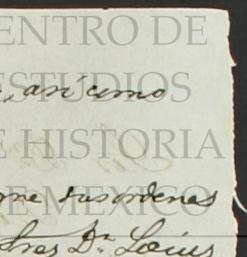 CENTRO DE
ESTUDIOS
así como
DE HISTORIA
DE MEXICO
me sus ordenes
tres Dn